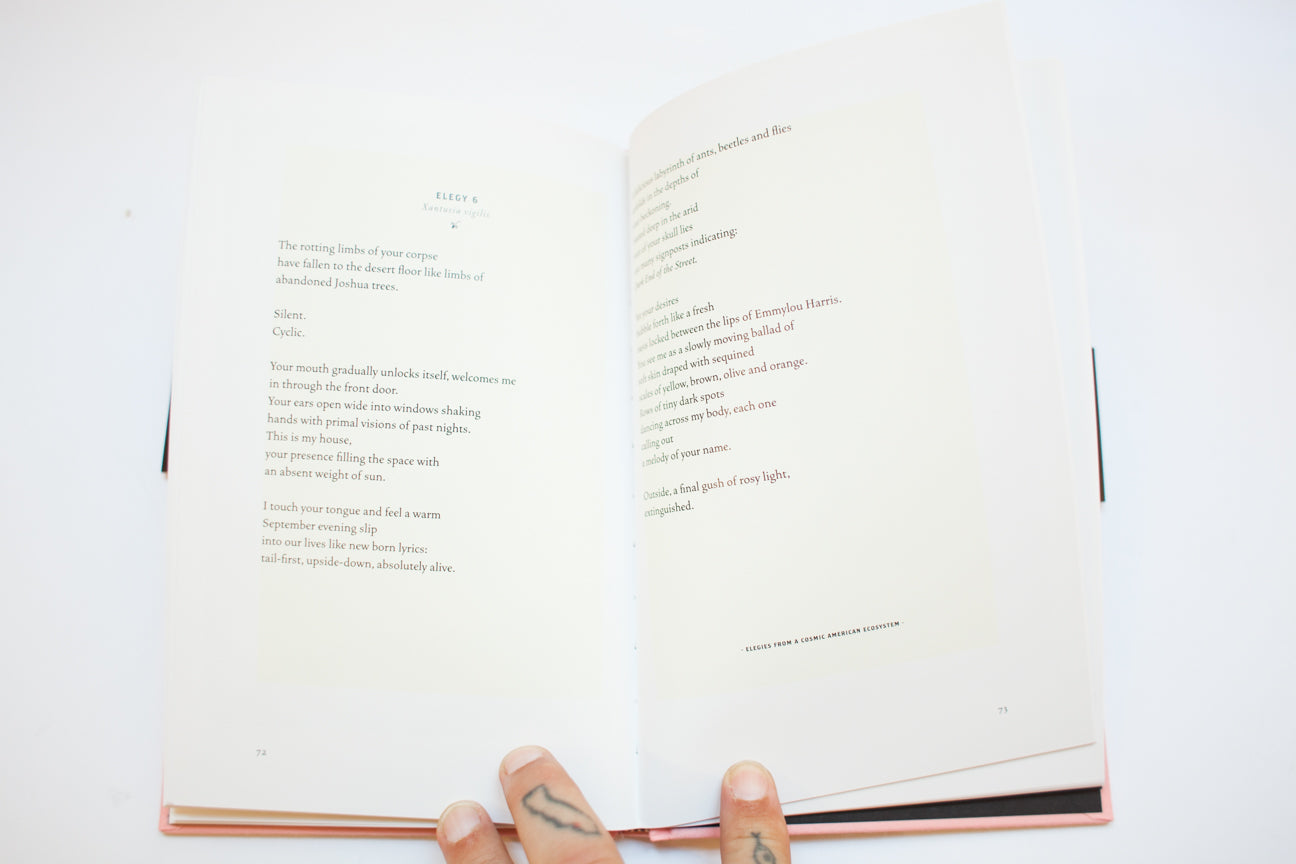 ELEGY 6
Xantusia vigilis
The rotting limbs of your corpse
have fallen to the desert floor like limbs of
abandoned Joshua trees.
Silent.
Cyclic.
Your mouth gradually unlocks itself, welcomes me
in through the front door.
Your ears open wide into windows shaking
hands with primal visions of past nights.
This is my house,
your presence filling the space with
an absent weight of sun.
I touch your tongue and feel a warm
September evening slip
into our lives like new born lyrics:
tail-first, upside-down, absolutely alive.
72
labyrinth of ants, beetles and flies
in the depths of
beckoning.
deep in the arid
of your skull lies
many signposts indicating:
End of the Street.
your desires
forth like a fresh
locked between the lips of Emmylou Harris.
see me as a slowly moving ballad of
soft skin draped with sequined
scales of yellow, brown, olive and orange.
Rows of tiny dark spots
dancing across my body, each one
calling out
a melody of your name.
Outside, a final gush of rosy light,
extinguished.
· ELEGIES FROM A COSMIC AMERICAN ECOSYSTEM ·
73